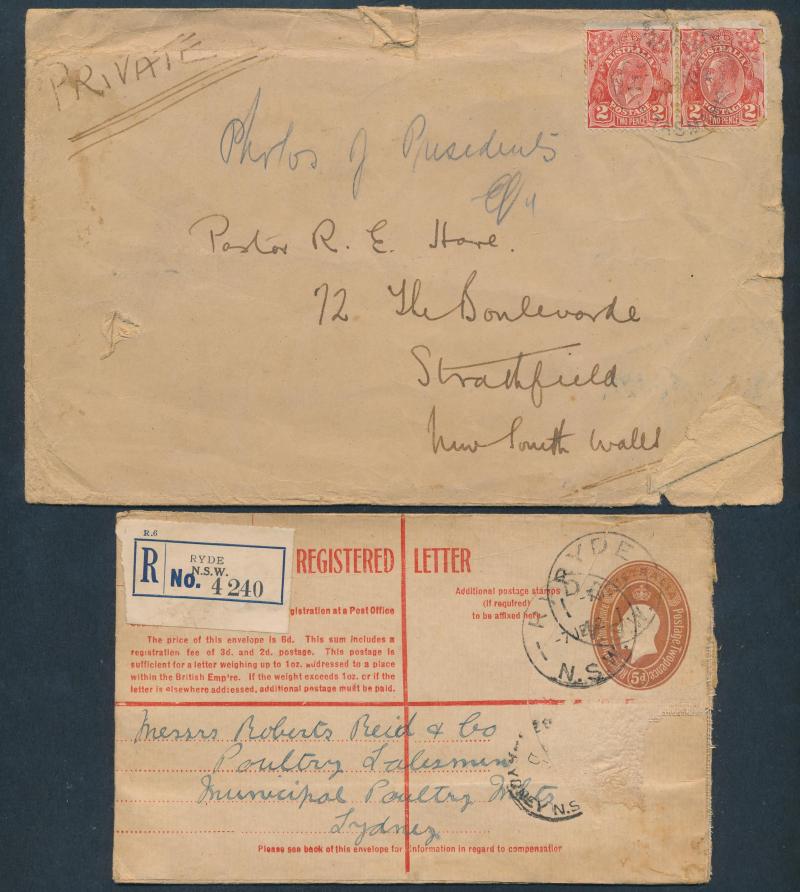 PRIVATE
AUSTRALIA AUSTRALIA
POSTAGE POSTAGE
2 TWO PENCE 2 2 TWO PENCE 2
Photos of Presidents
Pastor R. E. Hare.
72 The Boulevarde
Strathfield
New South Wales
R.6
R RYDE
N.S.W.
No. 4240
REGISTERED LETTER
Additional postage stamps
(if required)
to be affixed here
egistration at a Post Office
The price of this envelope is 6d. This sum includes a
registration fee of 3d. and 2d. postage. This postage is
sufficient for a letter weighing up to 1oz. addressed to a place
within the British Empire. If the weight exceeds 1oz. or if the
letter is elsewhere addressed, additional postage must be paid.
RYDE
N.S.
Postage Twopence
5D
Messrs Roberts Reid & Co
Poultry Salesmen
Municipal Poultry Mkts
Sydney
SYDNEY N.S
Please see back of this envelope for information in regard to compensation